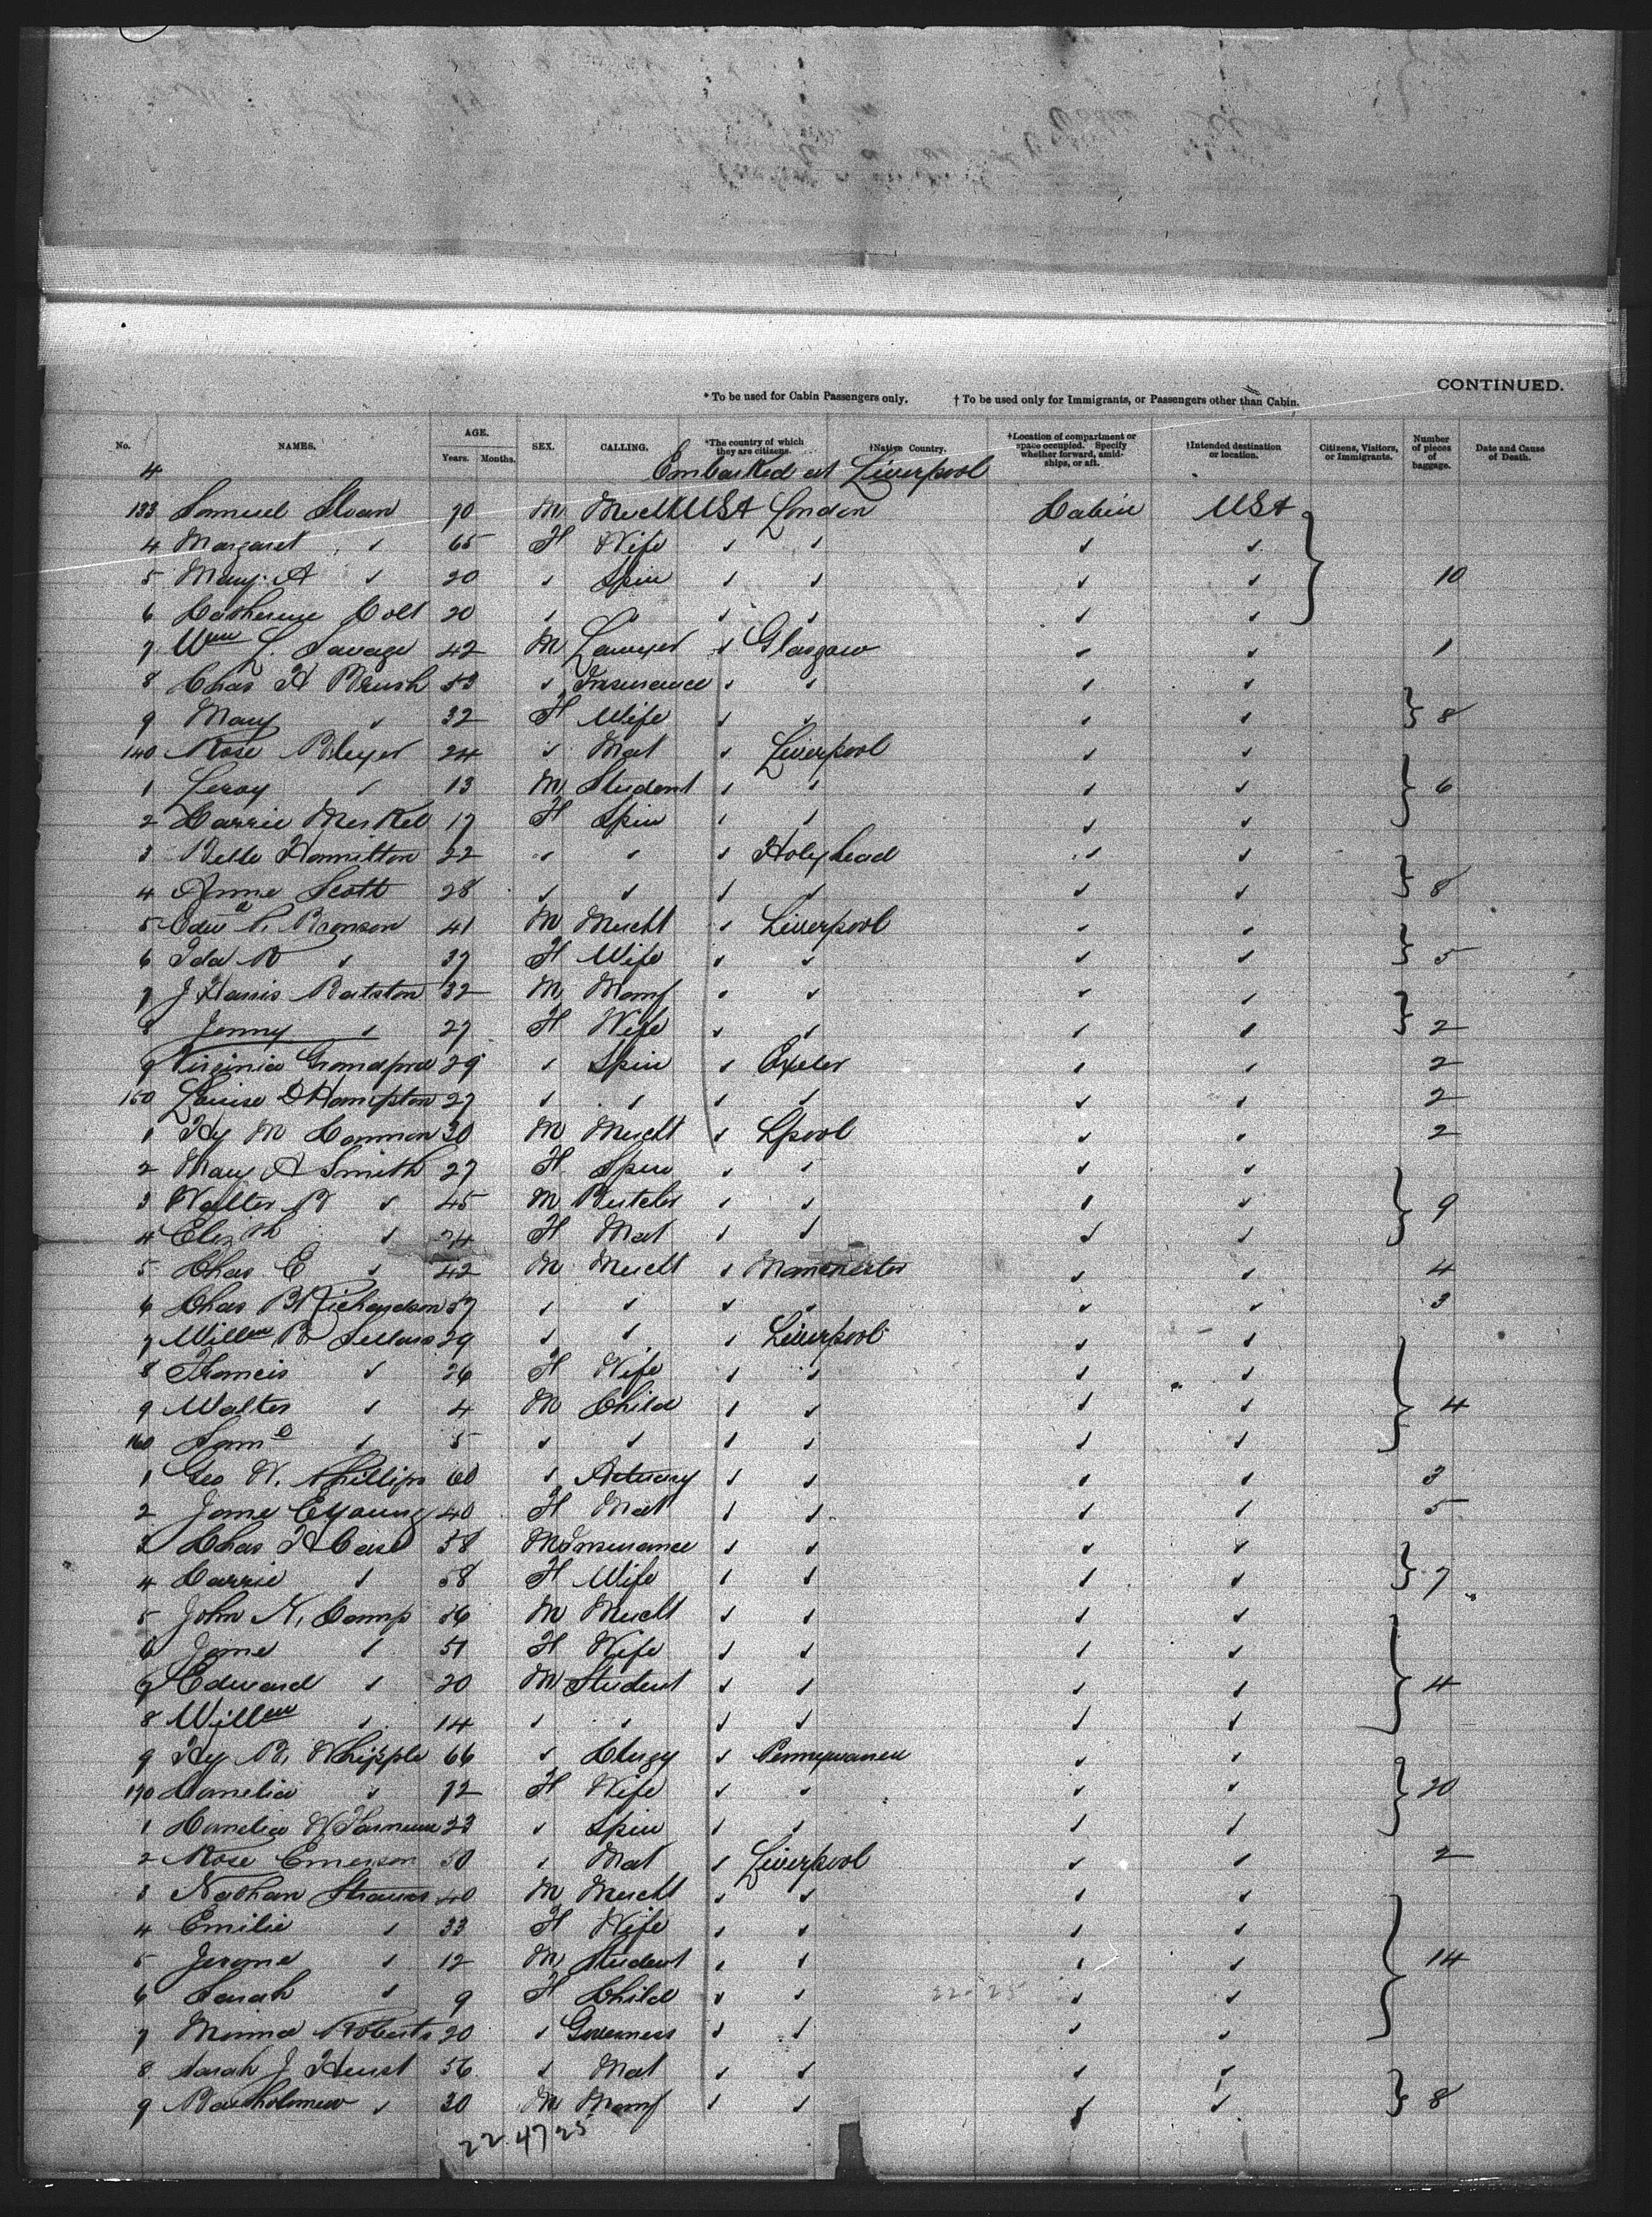 CONTINUED.
* To be used for Cabin Passengers only. † To be used only for Immigrants, or Passengers other than Cabin.
No. NAMES. AGE. Years. Months. SEX. CALLING. *The country of which they are citizens. †Native Country. †Location of compartment or space occupied. Specify whether forward, amidships, or aft. †Intended destination or location. Citizens, Visitors, or Immigrants. Number of pieces of baggage. Date and Cause of Death.
4 Embarked at Liverpool
133 Samuel Sloan 70 M Mercht USA London Cabin USA
4 Margaret " 65 F Wife " " " "
5 Mary A " 20 " Spin " " " " 10
6 Catherine Colt 20 " " " " " "
7 Wm L. Savage 42 M Lawyer " Glasgow " " 1
8 Chas H Brush 53 " Insurance " " " "
9 Mary " 32 F Wife " " " " 8
140 Rose Bleyer 24 " Mat " Liverpool " "
1 Leroy " 13 M Student " " " " 6
2 Carrie Merkel 17 F Spin " " " "
3 Belle Hamilton 22 " " " Holyhead " "
4 Anne Scott 28 " " " " " " 8
5 Edwd P. Bronson 41 M Mercht " Liverpool " "
6 Ida R " 37 F Wife " " " " 5
7 J Harris Balston 32 M Manf " " " "
8 Jenny " 27 F Wife " " " " 2
9 Virginia 29 " Spin " Exeter " " 2
150 Louise D Hampton 27 " " " " " " 2
1 Hy M Cannon 30 M Mercht " Lpool " " 2
2 Mary A Smith 27 F Spin " " " "
3 Walter B " 45 M Butcher " " " " 9
4 Elizth " F Mat " " " "
5 Chas E " 42 M Mercht " Manchester " " 4
6 Chas B Richardson 57 " " " " " " 3
7 Willm B Sellars 29 " " " Liverpool " "
8 Francis " 26 F Wife " " " "
9 Walter " 4 M Child " " " " 4
160 Saml " 5 " " " " " "
1 Geo W. Phillips 60 " Actuary " " " " 3
2 Jane E Young 40 F Mat " " " " 5
3 Chas H Case 58 M Insurance " " " "
4 Carrie " 58 F Wife " " " " 7
5 John N. Camp 56 M Mercht " " " "
6 Jane " 51 F Wife " " " "
7 Edward " 20 M Student " " " " 4
8 Willm " 14 " " " " " "
9 Hy B. Whipple 66 " Clergy " " "
170 Cornelia " 72 F Wife " " " " 20
1 Cornelia W 23 " Spin " " " "
2 Rose Emerson 50 " Mat " Liverpool " " 2
3 Nathan Strauss 40 M Mercht " " " "
4 Emilie " 33 F Wife " " " "
5 Jerome " 12 M Student " " " " 14
6 Sarah " 9 F Child " " " "
7 Minna Roberts 20 " Governess " " " "
8 Sarah J Hurst 56 " Mat " " " "
9 Bartholomew " 30 M Manf " " " " 8
22.4725